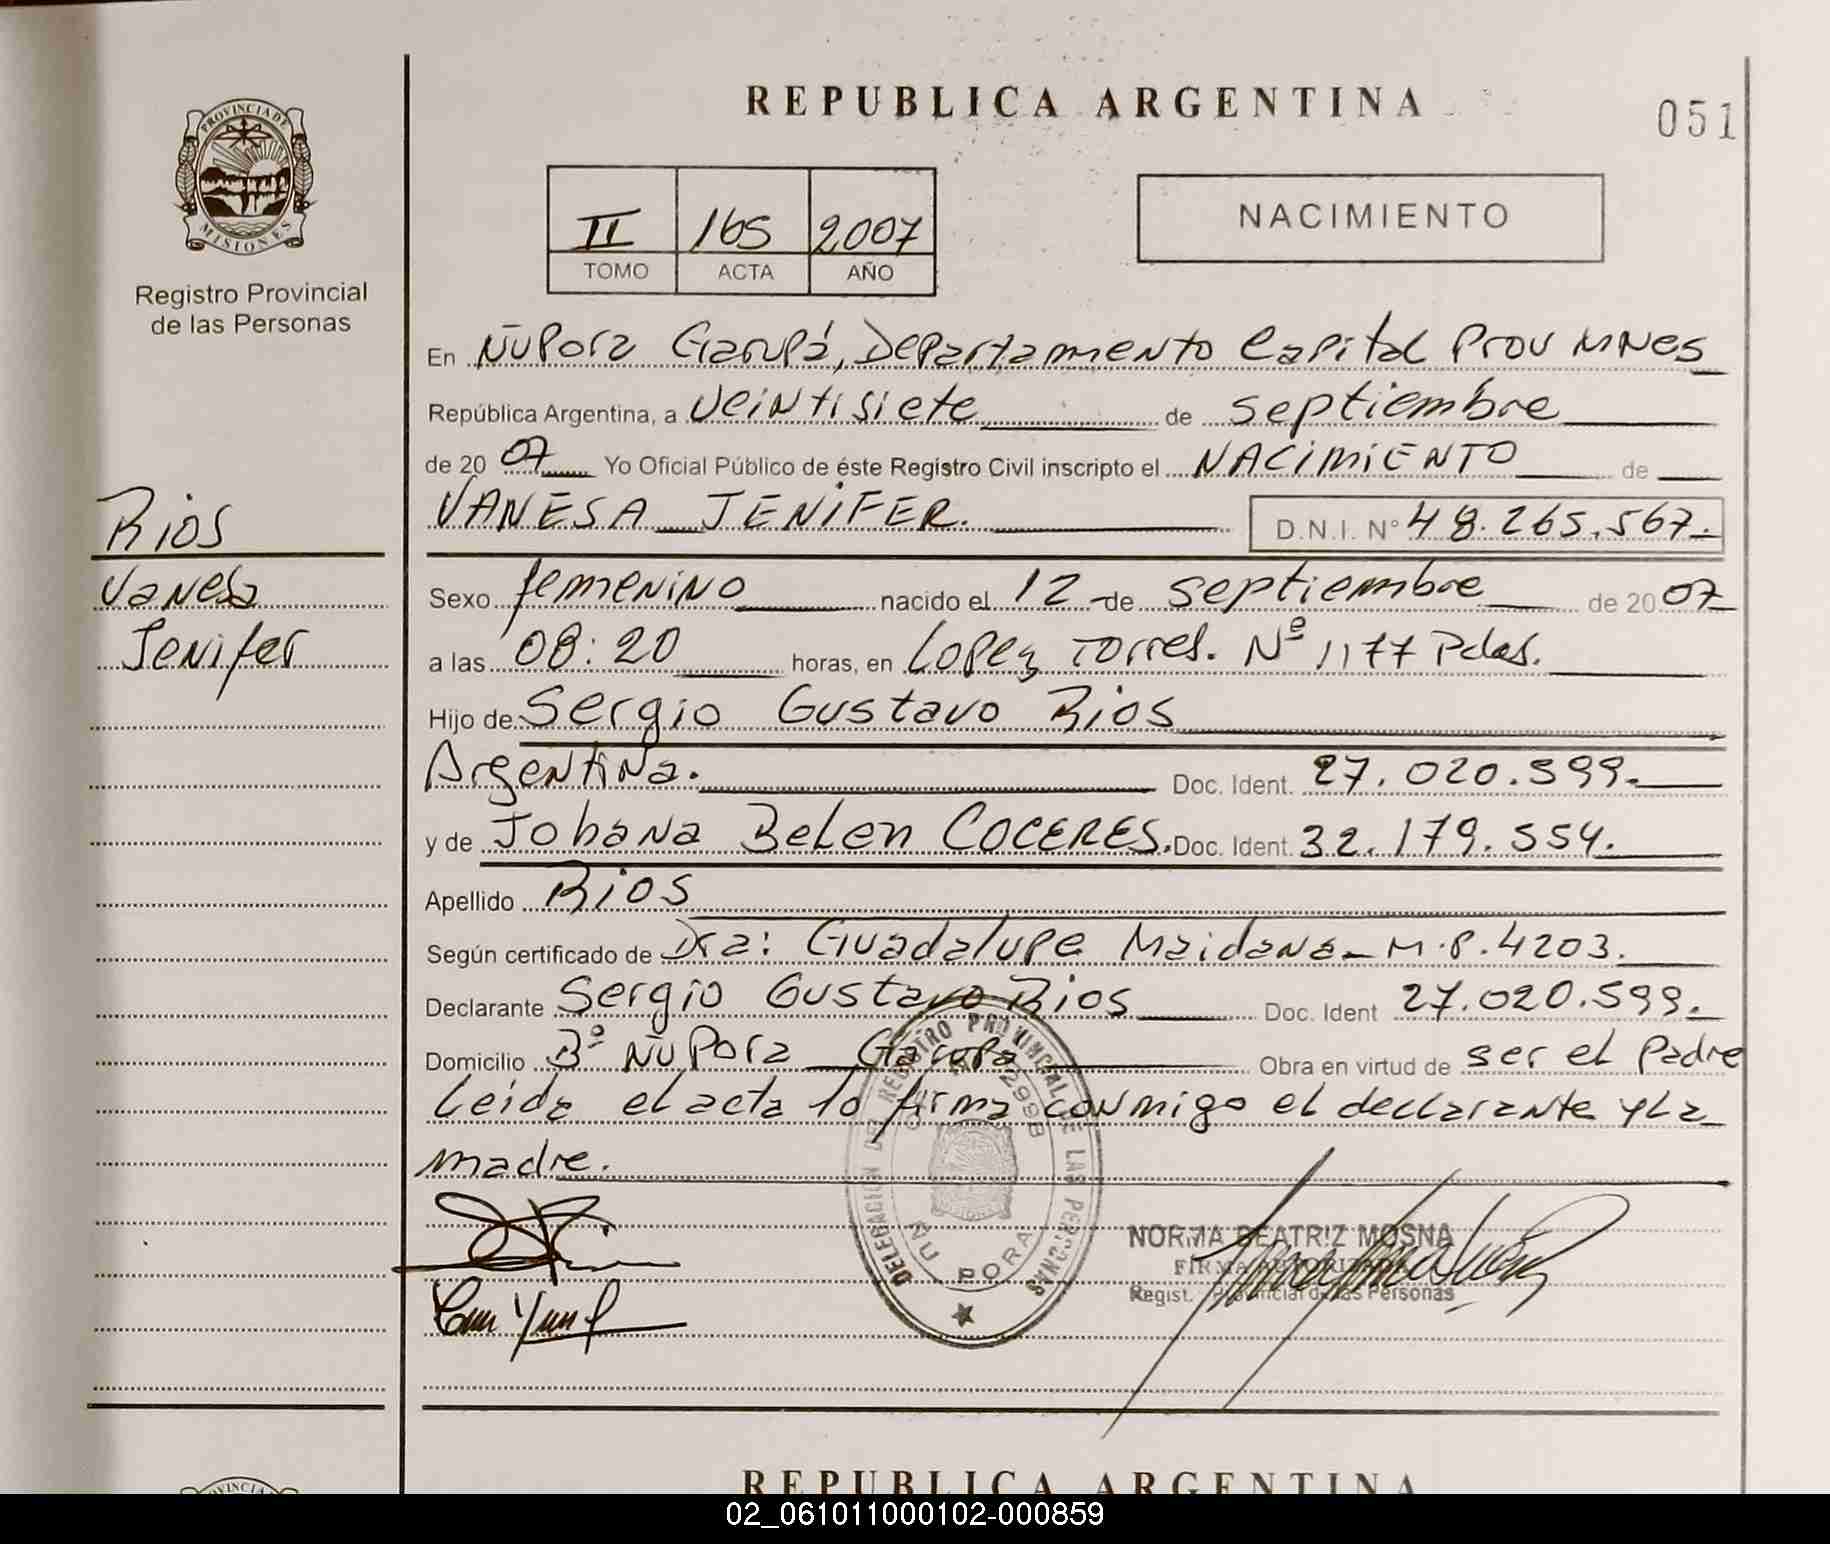 REPUBLICA ARGENTINA
051
PROVINCIA DE
MISIONES
Registro Provincial
de las Personas
II 165 2007
TOMO ACTA AÑO
NACIMIENTO
En ÑuPorá Garupá, Departamento Capital Prov MNes
República Argentina, a veintisiete de septiembre
de 2007 Yo Oficial Público de éste Registro Civil inscripto el NACIMIENTO de
VANESA JENIFER. D.N.I. N° 48.265.567.
Rios
Vanesa
Jenifer
Sexo femenino nacido el 12 de septiembre de 2007
a las 08:20 horas, en Lopez Torres. Nº 1177 Pdas.
Hijo de Sergio Gustavo Rios
Argentina. Doc. Ident. 27.020.599.
y de Johana Belen COCERES. Doc. Ident. 32.179.554.
Apellido Rios
Según certificado de Dra: Guadalupe Maidana - M.P. 4203.
Declarante Sergio Gustavo Rios Doc. Ident 27.020.599.
Domicilio Bº Ñu Pora Garupa Obra en virtud de ser el padre
Leida el acta lo firma conmigo el declarante y La
madre.
DELEGACION DEL REGISTRO PROVINCIAL DE LAS PERSONAS
2998
ÑU PORA
NORMA BEATRIZ MOSNA
FIRMA AUTORIZADA
Regist. Provincial de las Personas
REPUBLICA ARGENTINA
02_061011000102-000859